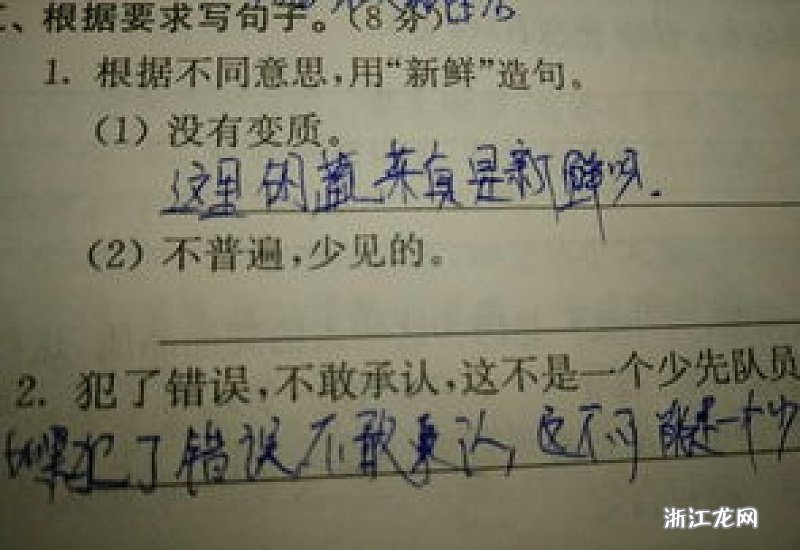 、根据要求写句子。(8分)
1. 根据不同意思,用“新鲜”造句。
(1) 没有变质。
这里的蔬菜真是新鲜呀.
(2) 不普遍,少见的。
2. 犯了错误,不敢承认,这不是一个少先队员
如果犯了错误不敢承认,这不可能是一个少
浙江龙网